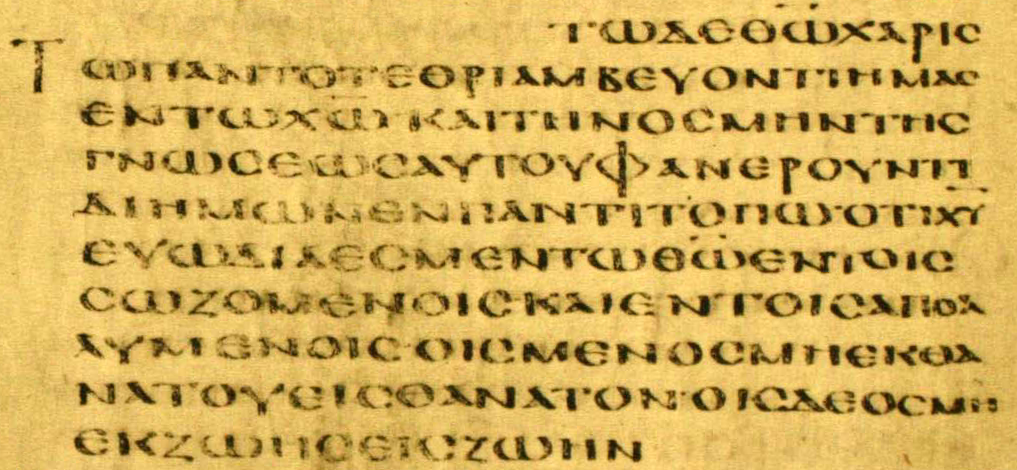 ΤΩΔΕΘ̅Ω̅ΧΑΡΙϹ
ΤΩΠΑΝΤΟΤΕΘΡΙΑΜΒΕΥΟΝΤΙΗΜΑϹ
ΕΝΤΩΧ̅Ω̅ΚΑΙΤΗΝΟϹΜΗΝΤΗϹ
ΓΝΩϹΕΩϹΑΥΤΟΥΦΑΝΕΡΟΥΝΤΙ
ΔΙΗΜΩΝΕΝΠΑΝΤΙΤΟΠΩ·ΟΤΙΧ̅Υ̅
ΕΥΩΔΙΑΕϹΜΕΝΤΩΘ̅Ω̅ΕΝΤΟΙϹ
ϹΩΖΟΜΕΝΟΙϹΚΑΙΕΝΤΟΙϹΑΠΟΛ
ΛΥΜΕΝΟΙϹ·ΟΙϹΜΕΝΟϹΜΗΕΚΘΑ
ΝΑΤΟΥΕΙϹΘΑΝΑΤΟΝ·ΟΙϹΔΕΟϹΜΗ
ΕΚΖΩΗϹΕΙϹΖΩΗΝ